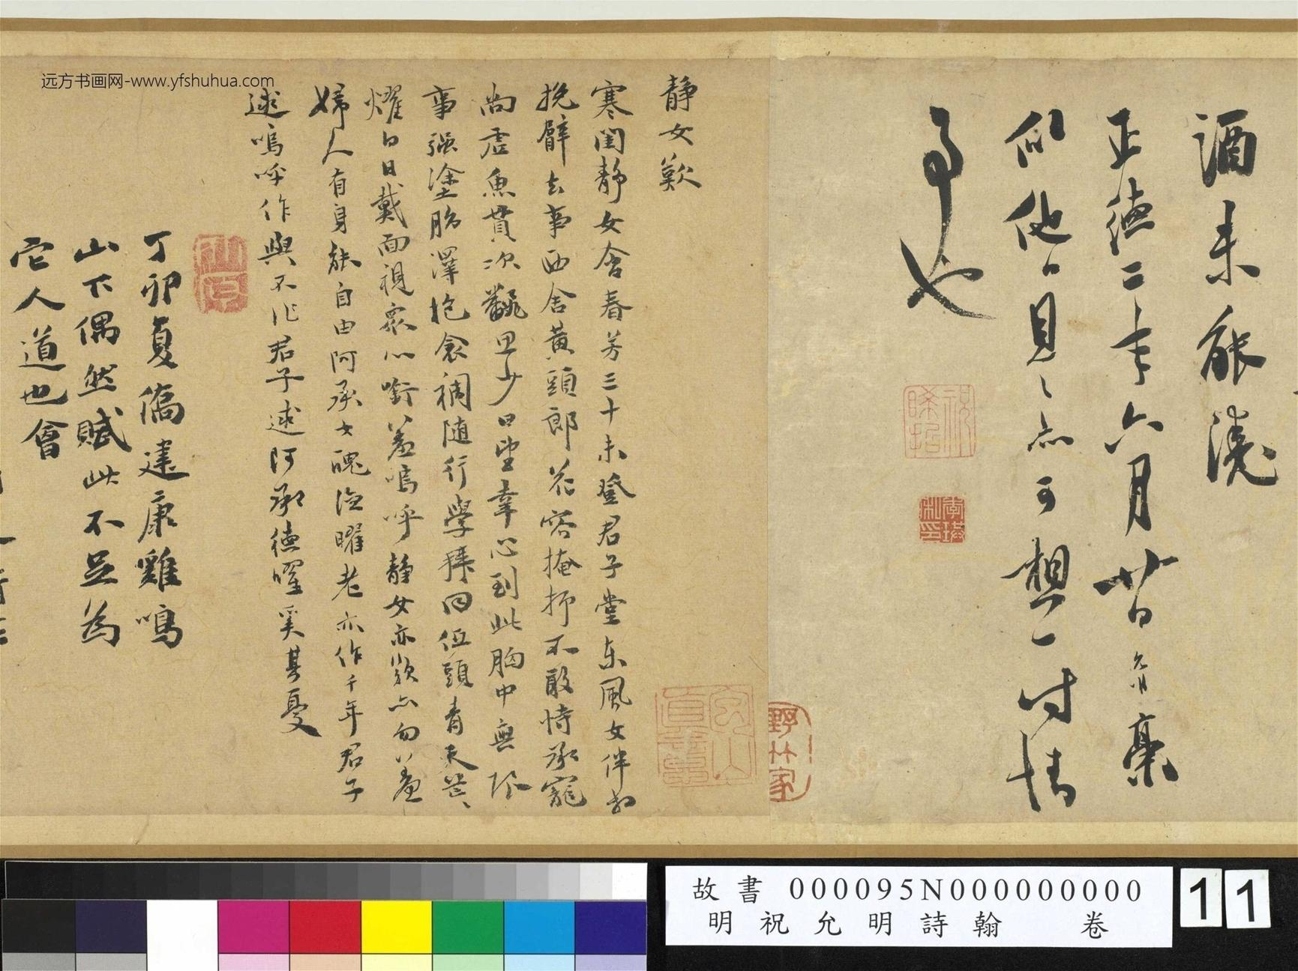 酒未能澆
正德二年六月廿日允明藁
似他日見之亦可想一時情
事也
静女歎
寒閨静女含春芳三十未登君子堂東風女伴相
挽臂去事西舍黄頭郎花容掩抑不敢恃承寵
尚虚魚貫次翻思少日望幸心到此胸中無
事强塗脂澤抱衾裯随行學拜回低頭青天茫
燿白日戴面視衆心銜羞嗚呼静女亦歎亦勿羞
婦人有身能自由阿承女醜德曜老亦作千年君子
逑嗚呼作與不作君子逑阿承德曜奚其憂
丁卯夏僑建康雞鳴
山下偶然賦此不足為
它人道也會
远方书画网-www.yfshuhua.com
故書 000095N000000000
明祝允明詩翰 卷
11